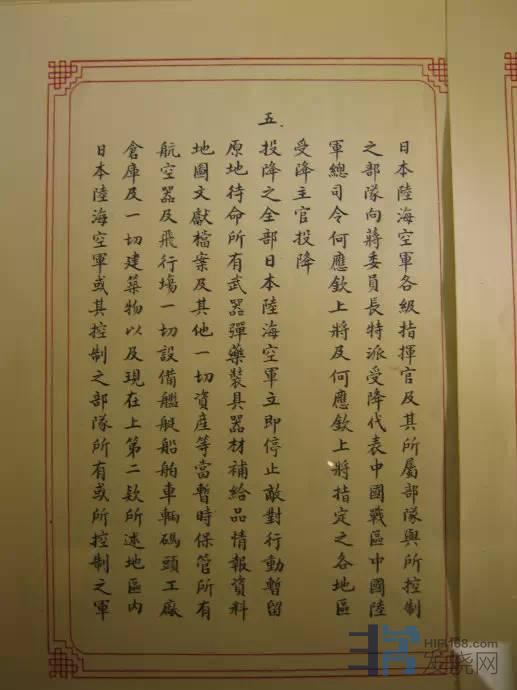 日本陸海空軍各級指揮官及其所屬部隊與所控制
之部隊向蔣委員長特派受降代表中國戰區中國陸
軍總司令何應欽上將及何應欽上將指定之各地區
受降主官投降
五.
投降之全部日本陸海空軍立即停止敵對行動暫留
原地待命所有武器彈藥裝具器材補給品情報資料
地圖文獻檔案及其他一切資產等當暫時保管所有
航空器及飛行場一切設備艦艇船舶車輛碼頭工廠
倉庫及一切建築物以及現在上第二欵所述地區內
日本陸海空軍或其控制之部隊所有或所控制之軍
HIFI168.com
发烧网